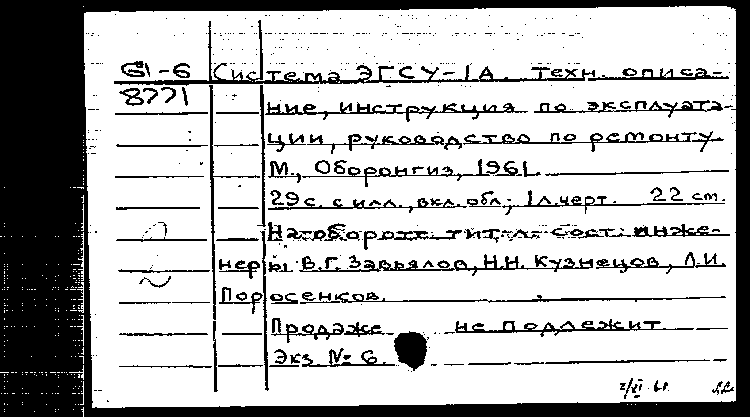 61-6 Система ЭГСУ-1А. Техн. описа-
8771 ние, инструкция по эксплуата-
ции, руководство по ремонту.
М., Оборонгиз, 1961.
29 с. с илл., вкл. обл.; 1 л. черт. 22 см.
На обороте тит. л. сост.: инже-
неры В.Г. Завьялов, Н.Н. Кузнецов, Л.И.
Поросенков.
Продаже не подлежит
Экз. № 6.
2/VI 61